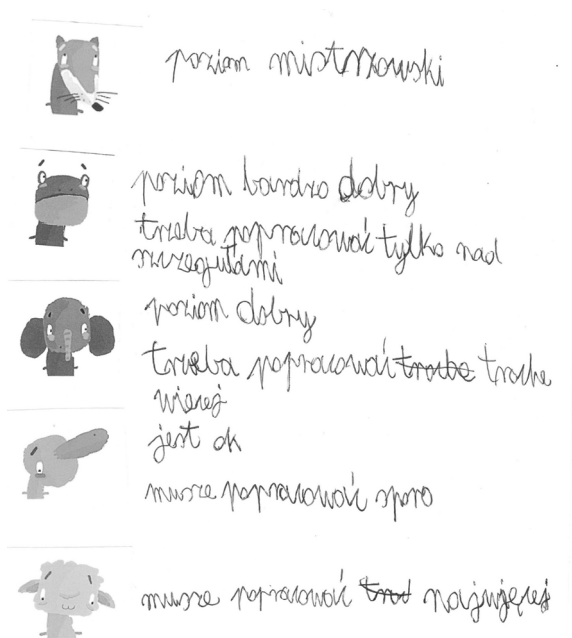 poziom mistrzowski
poziom bardzo dobry
trzeba popracować tylko nad
szczegułami
poziom dobry
trzeba popracować troche troche
wiencej
jest ok
musze popracować sporo
musze popracować najwięcej